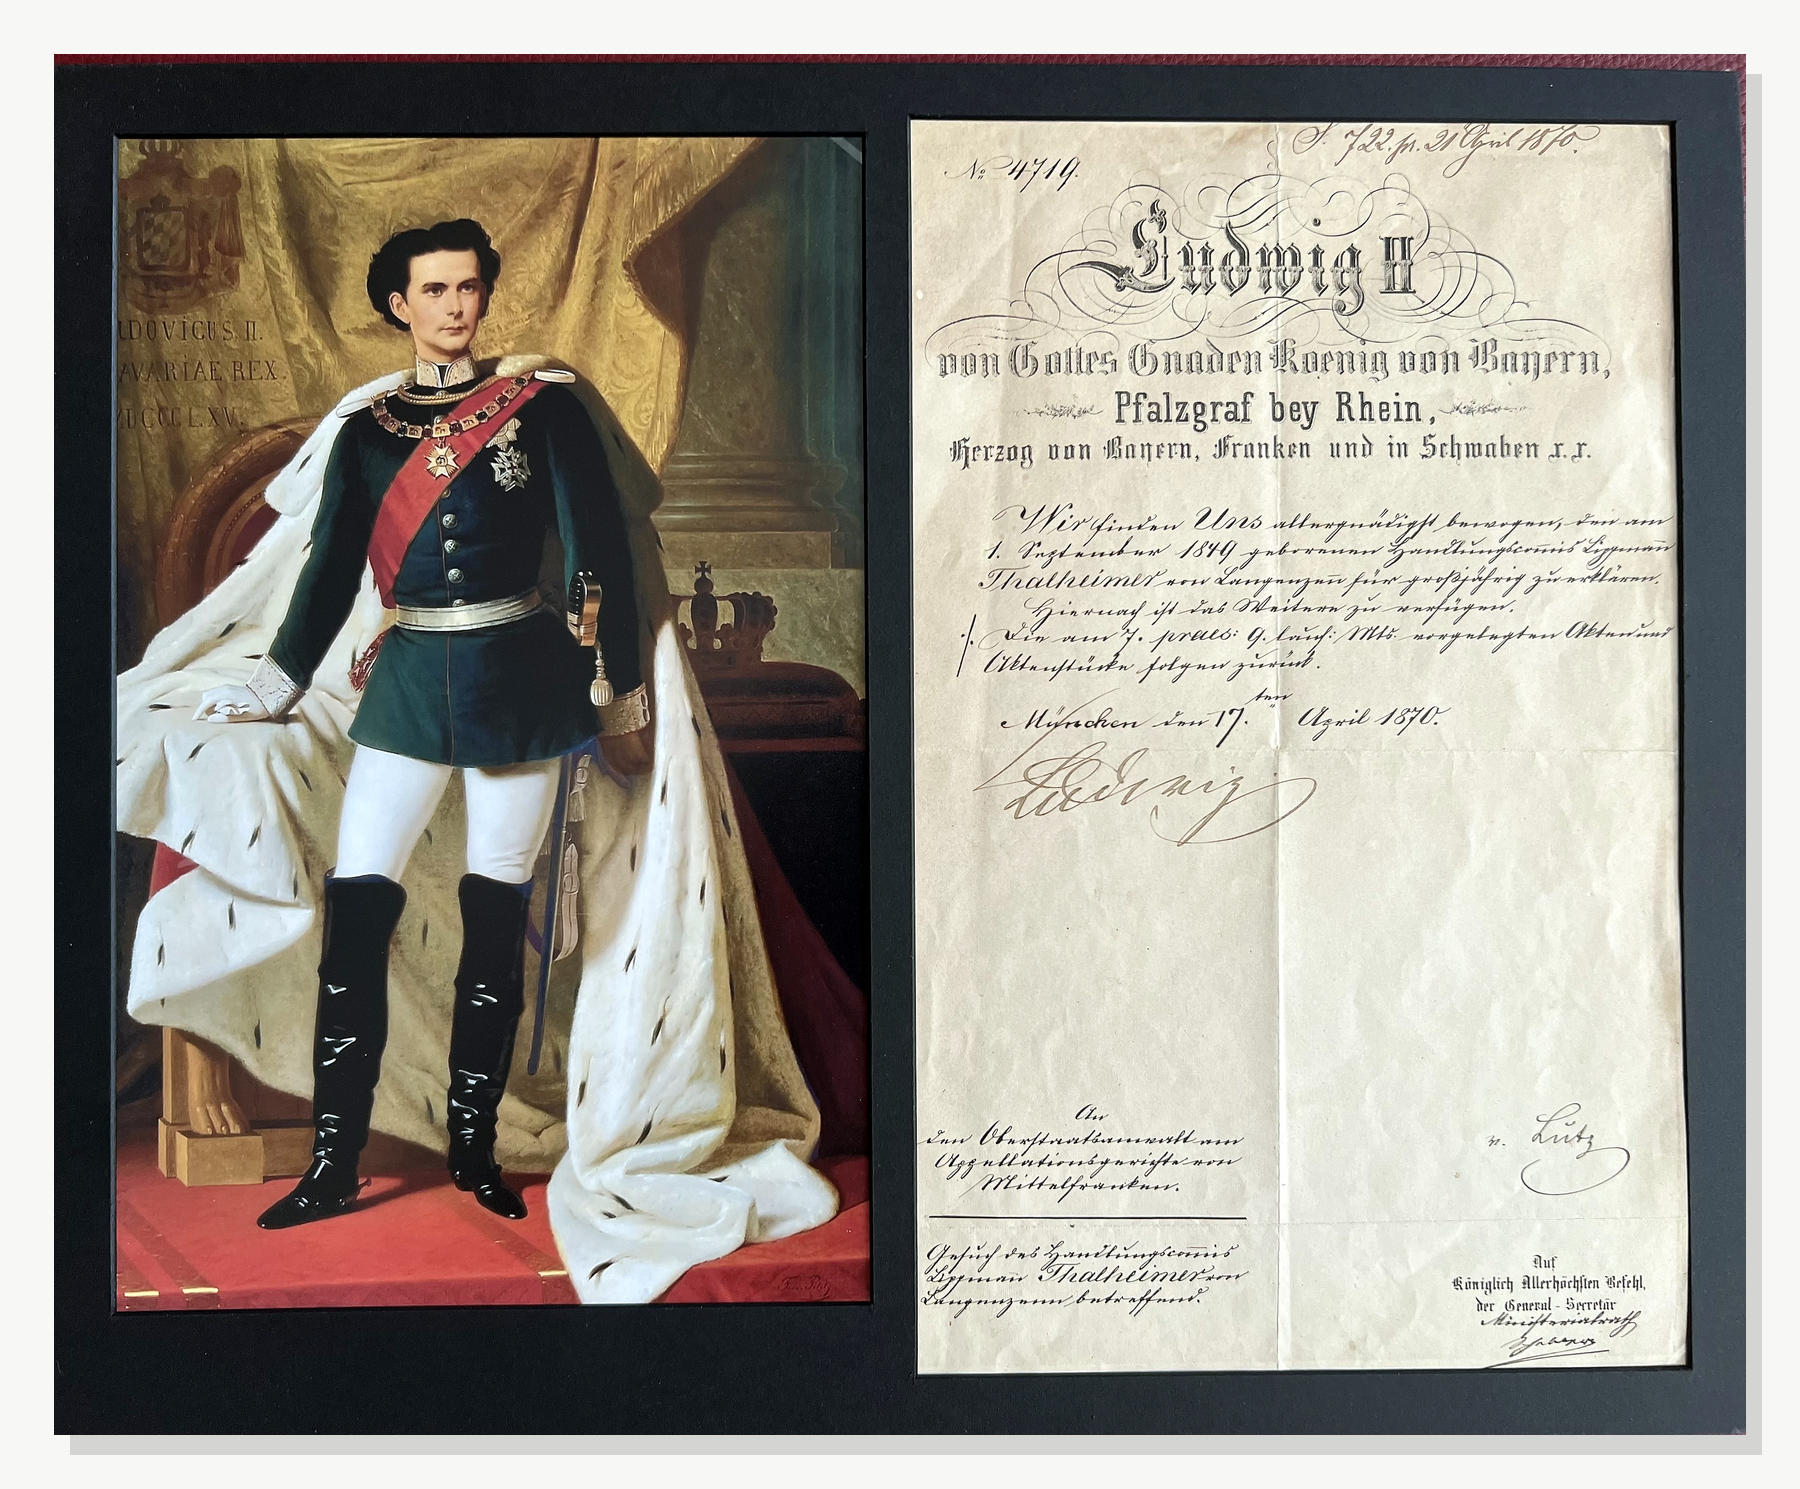 UDOVICUS. II.
AVARIAE REX.
MDCCCLXV.
Ferd. Piloty
J. 722. pr. 21 April 1870.
No 4719.
Ludwig II
von Gottes Gnaden Koenig von Bayern,
Pfalzgraf bey Rhein,
Herzog von Bayern, Franken und in Schwaben x. x.
Wir finden Uns allergnädigst bewogen, den am
1. September 1849 geborenen Handlungscom̅is Lippman̅
Thalheimer von Langenzen̅ für großjährig zu erklären.
Hiernach ist das Weitere zu verfügen.
Die am 7. praes: 9. lauf: Mts. vorgelegten Akten und
Aktenstücke folgen zurück.
München den 17.ten April 1870.
Ludwig
An
den Oberstaatsanwalt am
Appellationsgerichte von
Mittelfranken.
v. Lutz
Gesuch des Handlungscom̅is
Lippman̅ Thalheimer von
Langenzenn betreffend.
Auf
Königlich Allerhöchsten Befehl,
der General-Secretär
Ministerialrath